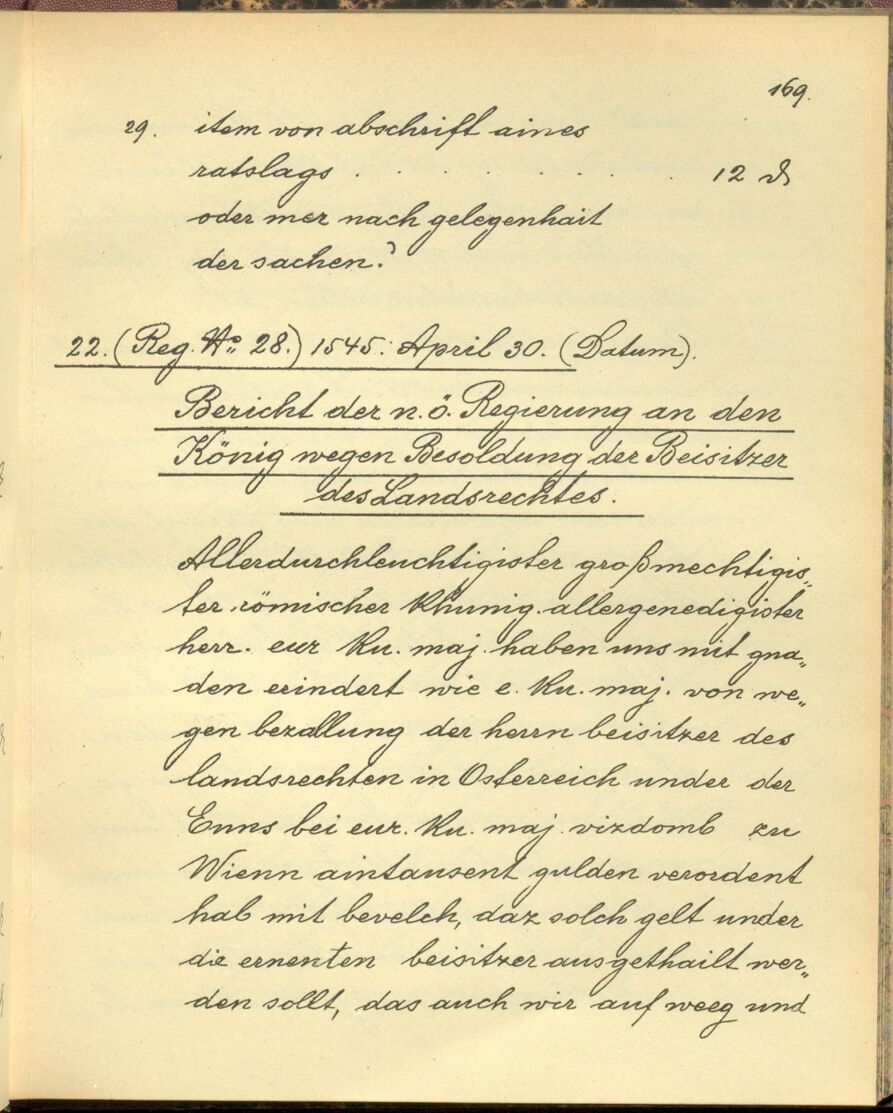 169.
29. item von abschrift aines
ratslags . . . . . . . . . 12 ₰
oder mer nach gelegenhait
der sachen.?
22. (Reg. No. 28.) 1545. April 30. (Datum).
Bericht der n. ö. Regierung an den
König wegen Besoldung der Beisitzer
des Landsrechtes.
Allerdurchleuchtigister großmechtigis„
ter römischer Khunig allergenedigister
herr. eur Ku. maj. haben uns mit gna„
den erindert wie e. Ku. maj. von we„
gen bezallung der herrn beisitzer des
landsrechten in Osterreich under der
Enns bei eur. Ku. maj. vizdomb zu
Wienn aintausent gulden verordent
hab mit bevelch, daz solch gelt under
die ernenten beisitzer ausgethailt wer„
den sollt, das auch wir auf weeg und